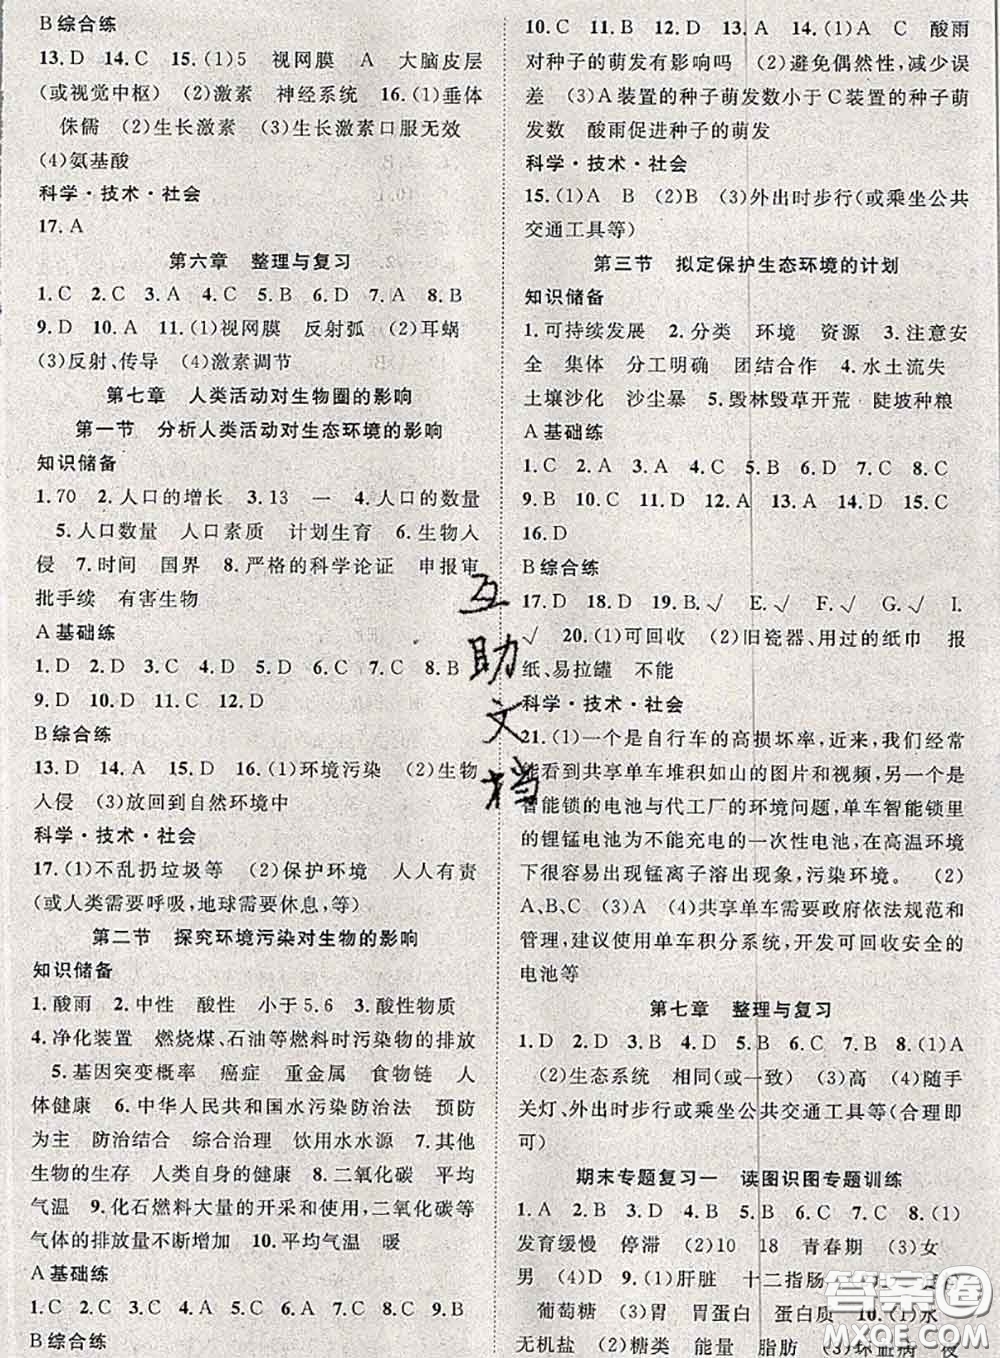 B综合练
13.D 14.C 15.(1)5 视网膜 A 大脑皮层
(或视觉中枢) (2)激素 神经系统 16.(1)垂体
侏儒 (2)生长激素 (3)生长激素口服无效
(4)氨基酸
科学·技术·社会
17.A
第六章 整理与复习
1.C 2.C 3.A 4.C 5.C 6.D 7.A 8.B
9.D 10.A 11.(1)视网膜 反射弧 (2)耳蜗
(3)反射、传导 (4)激素调节
第七章 人类活动对生物圈的影响
第一节 分析人类活动对生态环境的影响
知识储备
1.70 2.人口的增长 3.13 一 4.人口的数量
5.人口数量 人口素质 计划生育 6.生物入
侵 7.时间 国界 8.严格的科学论证 申报审
批手续 有害生物
A基础练
1.D 2.D 3.D 4.C 5.D 6.B 7.C 8.C
9.D 10.D 11.C 12.D
B综合练
13.D 14.A 15.D 16.(1)环境污染 (2)生物
入侵 (3)放回到自然环境中
科学·技术·社会
17.(1)不乱扔垃圾等 (2)保护环境 人人有责
(或人类需要呼吸,地球需要休息,等)
第二节 探究环境污染对生物的影响
知识储备
1.酸雨 2.中性 酸性 小于5.6 3.酸性物质
4.净化装置 燃烧煤、石油等燃料时污染物的排放
5.基因突变概率 癌症 重金属 食物链 人
体健康 6.中华人民共和国水污染防治法 预防
为主 防治结合 综合治理 饮用水水源 7.其他
生物的生存 人类自身的健康 8.二氧化碳 平均
气温 9.化石燃料大量的开采和使用 二氧化碳等
气体的排放量不断增加 10.平均气温 暖
A基础练
1.C 2.C 3.B 4.A 5.B 6.C 7.D 8.D 9.C
B综合练
10.C 11.B 12.D 13.A 14.(1)A C 酸雨
对种子的萌发有影响吗 (2)避免偶然性,减少误
差 (3)A装置的种子萌发数小于C装置的种子萌
发数 酸雨促进种子的萌发
科学·技术·社会
15.(1)A B (2)B (3)外出时步行(或乘坐公共
交通工具等)
第三节 拟定保护生态环境的计划
知识储备
1.可持续发展 2.分类 环境 资源 3.注意安
全 集体 分工明确 团结合作 4.水土流失
土壤沙化 沙尘暴 5.毁林毁草开荒 陡坡种粮
A基础练
1.C 2.A 3.B 4.C 5.B 6.D 7.C 8.C
9.B 10.C 11.C 12.A 13.A 14.A 15.C
16.D
B综合练
17.D 18.D 19.B.√ E.√ F.√ G.√ I.
√ 20.(1)可回收 (2)旧瓷器、用过的纸巾 报
纸、易拉罐 不能
科学·技术·社会
21.(1)一个是自行车的高损坏率,近来,我们经常
能看到共享单车堆积如山的图片和视频,另一个是
智能锁的电池与代工厂的环境问题,单车智能锁里
的锂锰电池为不能充电的一次性电池,在高温环境
下很容易出现锰离子溶出现象,污染环境。 (2)
A、B、C (3)A (4)共享单车需要政府依法规范和
管理,建议使用单车积分系统,开发可回收安全的
电池等
第七章 整理与复习
1.D 2.D 3.D 4.D 5.B 6.B 7.C 8.(1)A
(2)生态系统 相同(或一致) (3)高 (4)随手
关灯、外出时步行或乘坐公共交通工具等(合理即
可)
期末专题复习一 读图识图专题训练
1.A 2.D 3.D 4.B 5.B 6.C 7.C 8.(1)
发育缓慢 停滞 (2)10 18 青春期 (3)女
男 (4)D 9.(1)肝脏 十二指肠
葡萄糖 (3)胃 胃蛋白 蛋白质 10.(1)水
无机盐 (2)糖类 能量 脂肪 (3)坏血病 夜
互助文档
答案圈
MXQE.COM